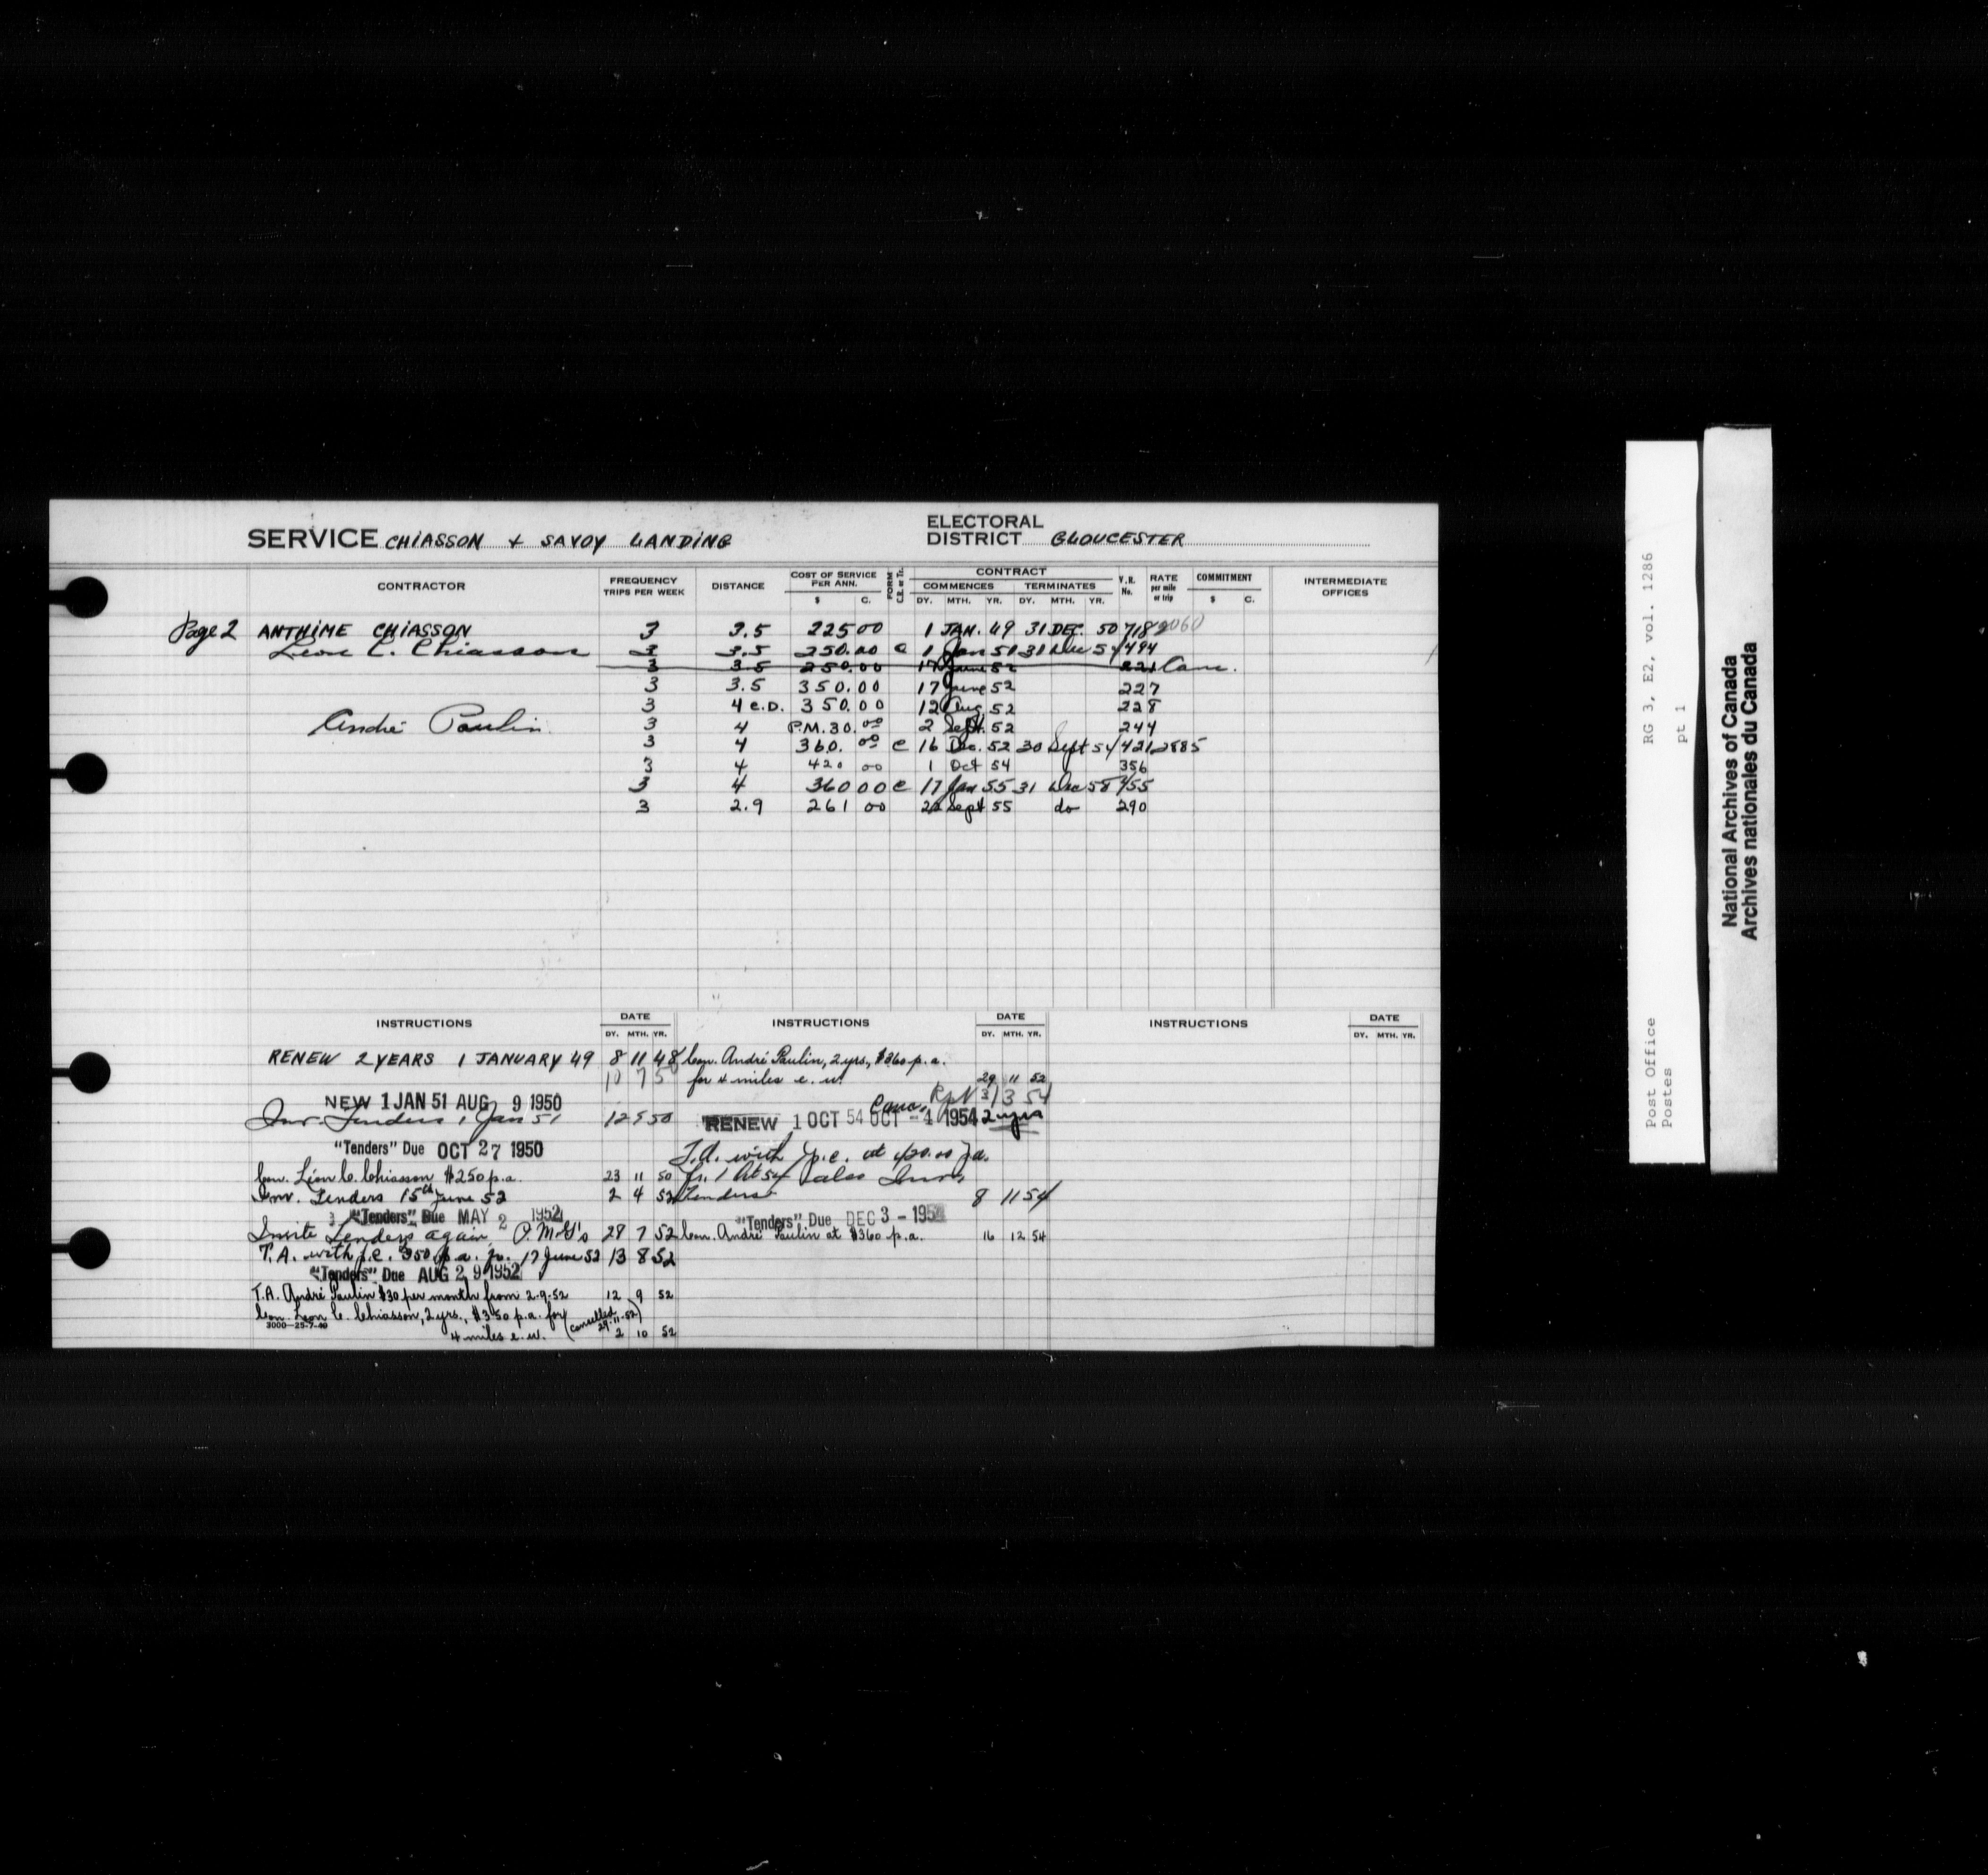 SERVICE CHIASSON + SAVOY LANDING
ELECTORAL DISTRICT GLOUCESTER
CONTRACTOR FREQUENCY TRIPS PER WEEK DISTANCE COST OF SERVICE PER ANN. $ C. FORM CONTRACT COMMENCES DY. MTH. YR. TERMINATES DY. MTH. YR. V.R. No. RATE per mile or trip COMMITMENT $ C. INTERMEDIATE OFFICES
Page 2 ANTHIME CHIASSON 3 3.5 225 00 1 JAN. 49 31 DEC. 50 718 2060
Léon C. Chiasson 3 3.5 250.00 C 1 Jan 51 31 Dec 54 494
3 3.5 250.00 17 June 52 221 Canc.
3 3.5 350.00 17 June 52 227
3 4 C.D. 350.00 12 Aug 52 228
André Paulin 3 4 P.M. 30.00 2 Sept. 52 244
3 4 360.00 C 16 Dec. 52 30 Sept 54 421 2885
3 4 420 00 1 Oct 54 356
3 4 360 00 C 17 Jan 55 31 Dec 58 455
3 2.9 261 00 22 Sept 55 do 290
INSTRUCTIONS DATE DY. MTH. YR. INSTRUCTIONS DATE DY. MTH. YR. INSTRUCTIONS DATE DY. MTH. YR.
RENEW 2 YEARS 1 JANUARY 49 8 11 48
10 7 5
NEW 1 JAN 51 AUG 9 1950
Inv. Tenders 1 Jan 51 12 9 50
"Tenders" Due OCT 27 1950
Con. Léon C. Chiasson $250 p.a. 23 11 50
Inv. Tenders 15th June 52 2 4 52
"Tenders" Due MAY 2 1952
Invite Tenders again P.M.G's 28 7 52
T.A. with p.c. 350 p.a. fr. 17 June 52 13 8 52
"Tenders" Due AUG 29 1952
T.A. André Paulin $30 per month from 2-9-52 12 9 52
Con. Léon C. Chiasson, 2 yrs., $350 p.a. for (cancelled 29-11-52)
3000-25-7-49
4 miles e.w. 2 10 52
Con. André Paulin, 2 yrs., $360 p.a.
for 4 miles e.w. 29 11 52
Canc. Rpt 31 3 54
RENEW 1 OCT 54 OCT -4 1954 2 yrs
T.A. with p.c. at 420.00 p.a.
fr. 1 Oct 54 also Inv.
Tenders 8 11 54
"Tenders" Due DEC 3 - 1954
Con. André Paulin at $360 p.a. 16 12 54
Post Office RG 3, E2, vol. 1286
Postes pt 1
National Archives of Canada
Archives nationales du Canada